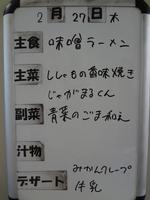 2月27日木
主食 味噌ラーメン
主菜 ししゃもの香味焼き
じゃがまるくん
副菜 青菜のごま和え
汁物
デザート みかんクレープ
牛乳